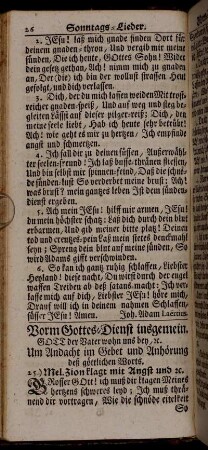 26 Sonntags-Lieder.
2. JEsu! laß mich gnade finden Dort für
deinem gnaden-thron, Und vergib mir meine
sünden, Die ich heute, GOttes Sohn! Wider
dein gesetz gethan, Ach! nimm mich zu gnaden
an, Der (die) ich bin der wollust strassen Heut
gefolgt, und dich verlassen.
3. Dich, der du mich lassen weiden Mit trost-
reicher gnaden-speiß, Und auf weg und steg be-
gleiten Lässst auf dieser pilger-reiß; Dich, den
meine seele liebt, Hab ich heute sehr betrübt!
Ach! wie geht es mir zu hertzen, Ich empfinde
angst und schmertzen.
4. Ich fall dir zu deinen füssen, Auserwähl-
ter seelen-freund! Ich laß buß-thränen fliessen,
Und bin selbst mir spinnen-feind, Daß die schnö-
de sünden-lust So verderbet meine brust; Ach!
was brust? mein gantzes leben Ist dem sünden-
dienst ergeben.
5. Ach mein JEsu! hilff mir armen, JEsu!
du mein höchster schatz: Laß dich durch dein blut
erbarmen, Und gib meiner bitte platz! Deinen
tod und creutzes-pein Laß mein stetes denckmahl
seyn; Spreng dein blut auf meine sünden, So
wird Adams gifft verschwinden.
6. So kan ich gantz ruhig schlaffen, Liebster
Heyland! diese nacht, Du wirst durch der engel
waffen Treiben ab deß satans macht: Ich ver-
lasse mich auf dich, Liebster JEsu! höre mich,
Drauf will ich in deinem nahmen Schlaffen,
süsser JEsu! Amen. Joh. Adam Laëritius.
Vorm Gottes-Dienst insgemein.
GOTT der Vater wohn uns bey, ꝛc.
Um Andacht im Gebet und Anhörung
deß göttlichen Worts.
25.) Mel. Zion klagt mit Angst und ꝛc.
GRosser GOtt! ich muß dir klagen Meines
hertzens schweres leyd; Ich muß thrä-
nend dir vortragen, Wie die schnöde eitelkeit
So